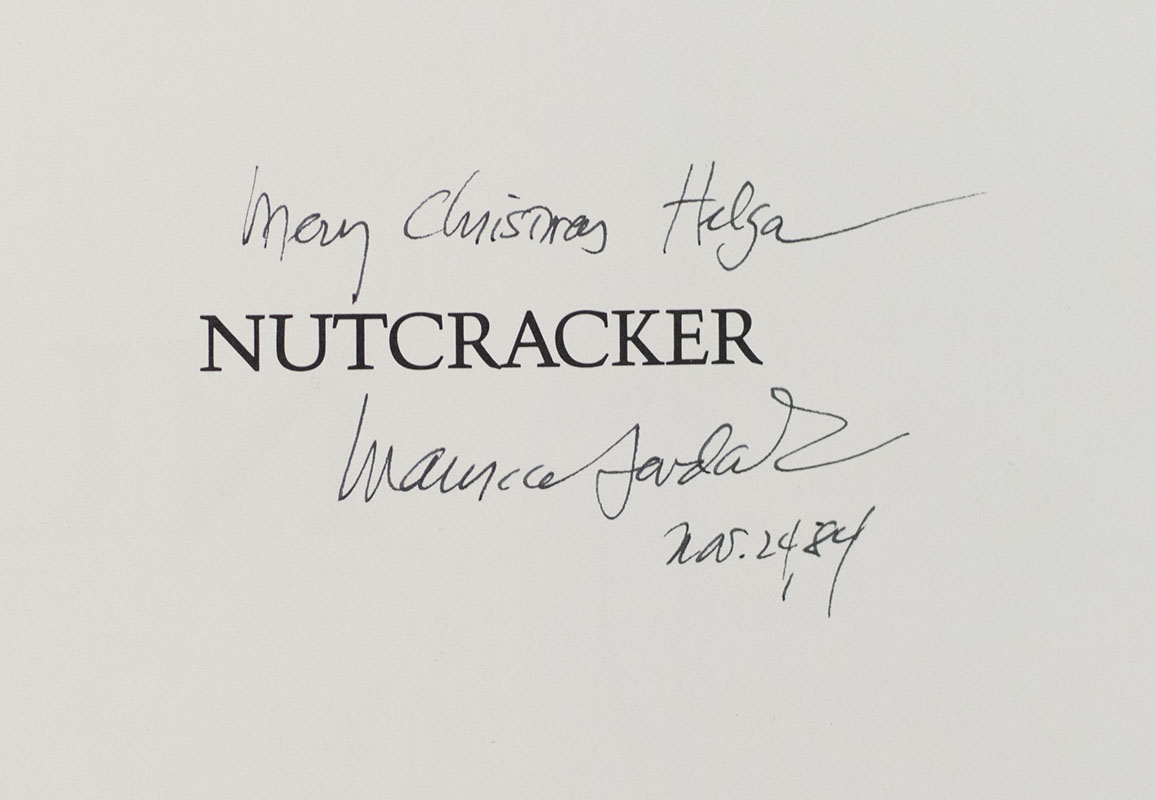 Merry Christmas Helga
NUTCRACKER
Maurice Sendak
Nov. 24, 84